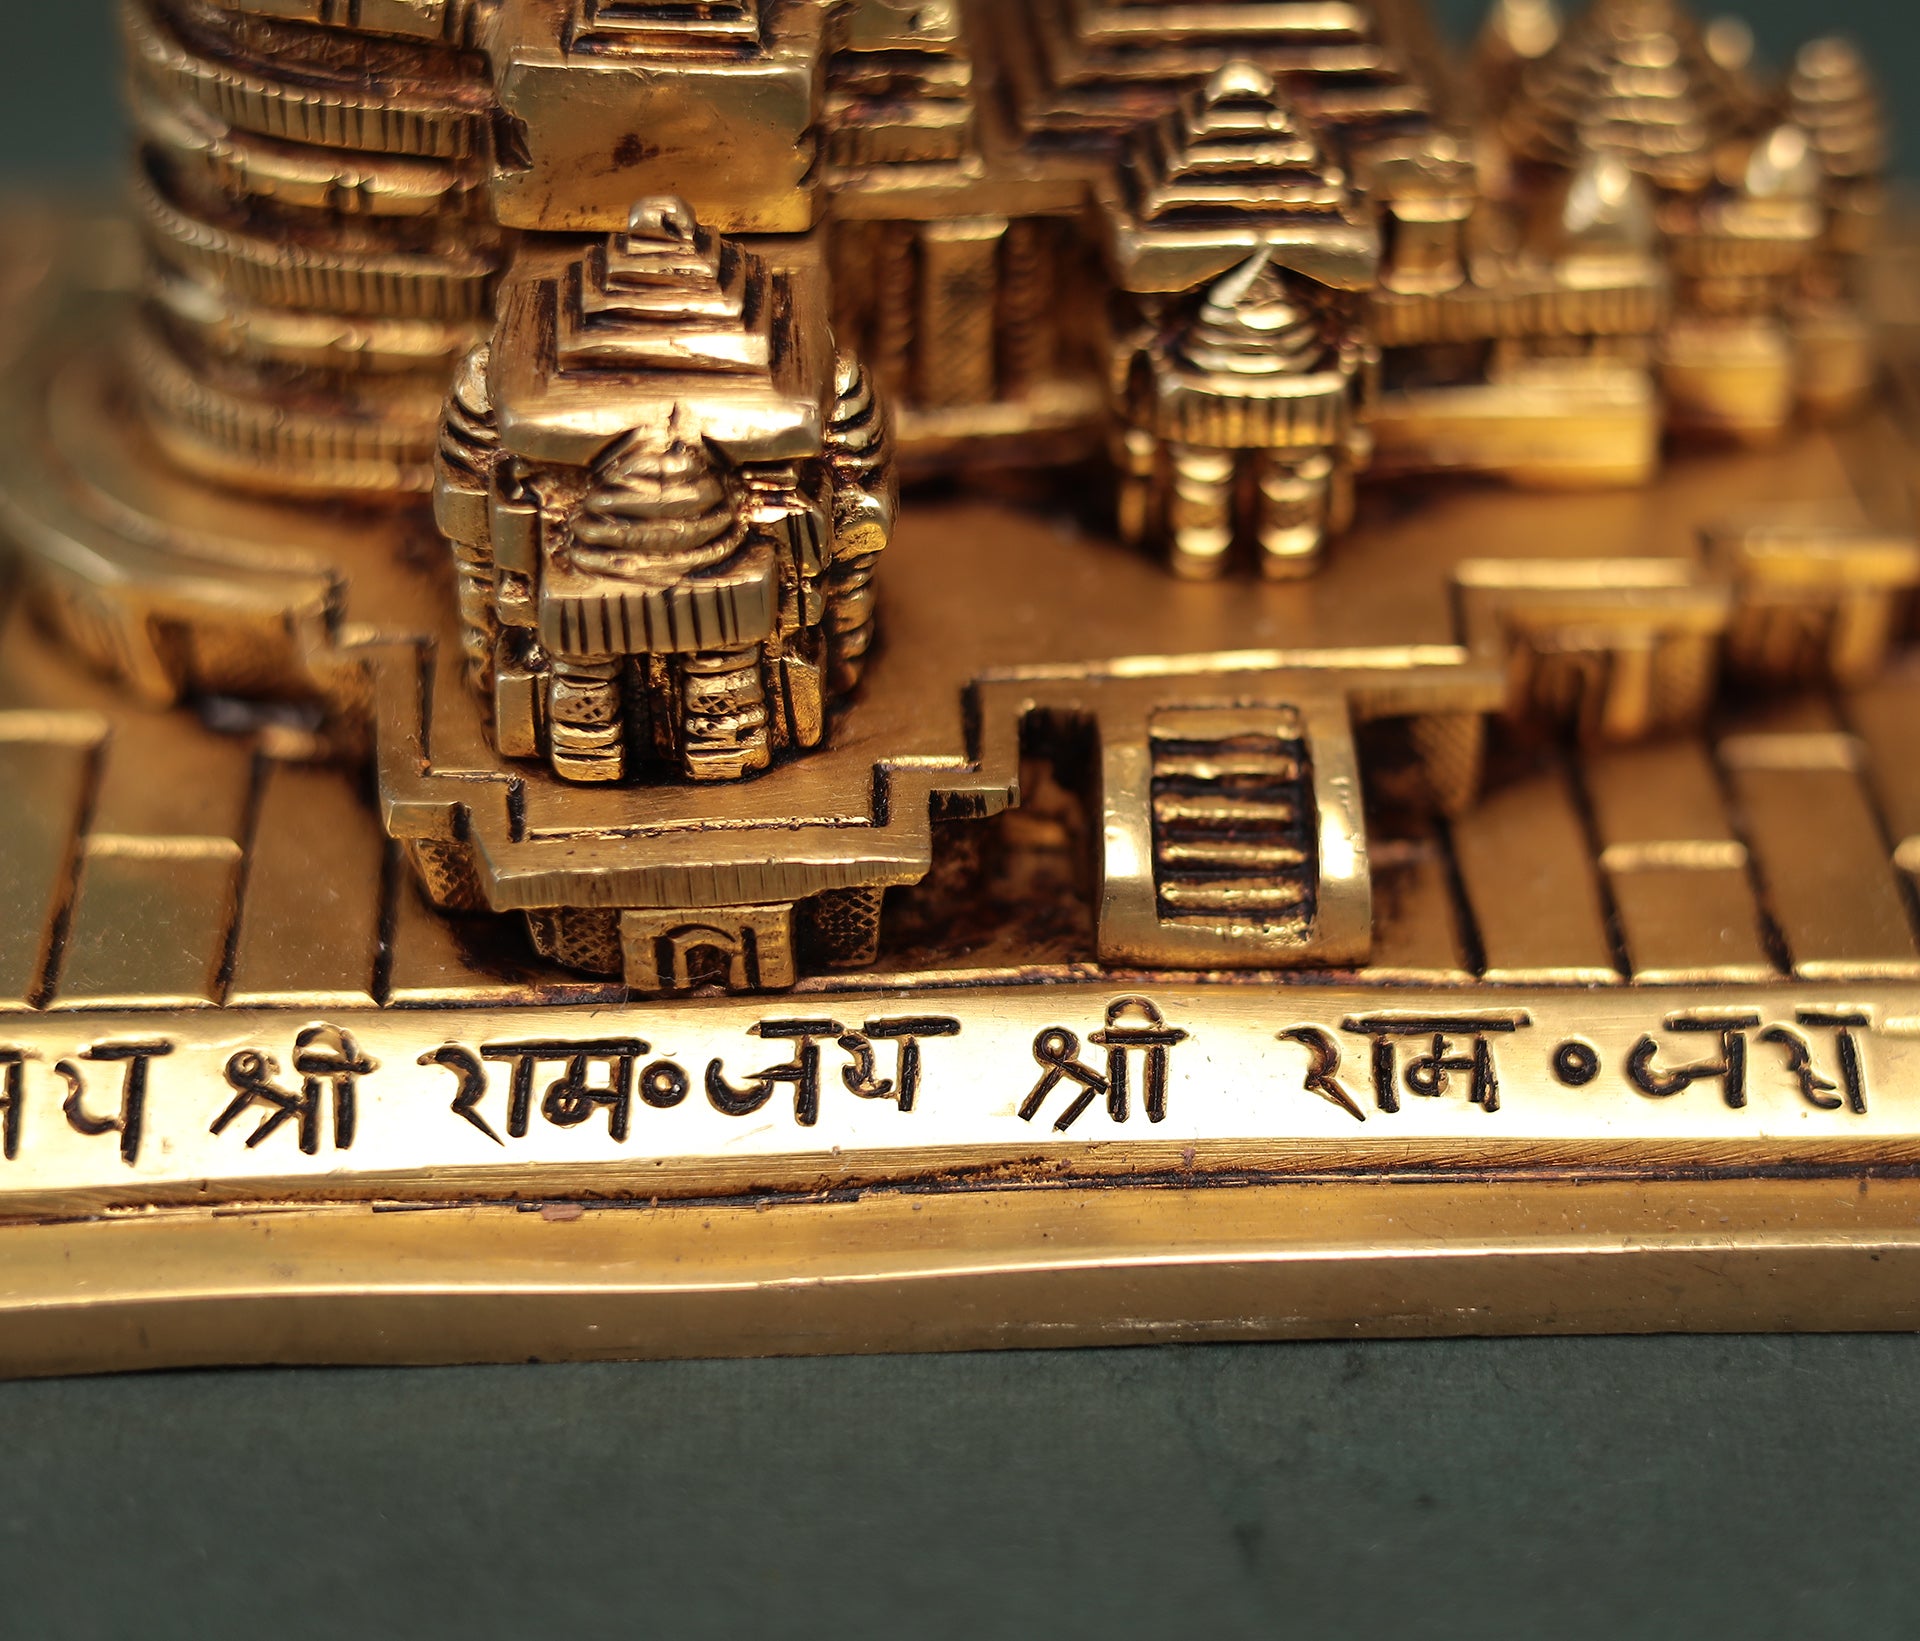 जय श्री राम॰जय श्री राम॰जय